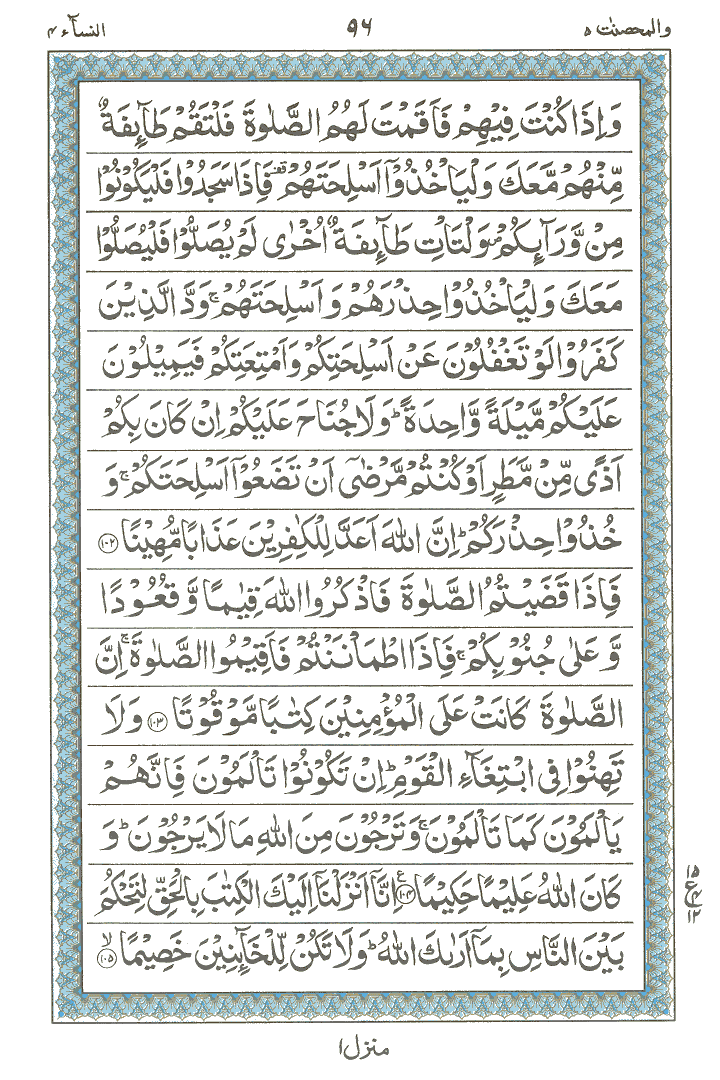 والمحصنت ۵ ۹۶ النسآء ۴
وَاِذَا كُنْتَ فِيْهِمْ فَاَقَمْتَ لَهُمُ الصَّلٰوةَ فَلْتَقُمْ طَآىِٕفَةٌ
مِّنْهُمْ مَّعَكَ وَلْيَاْخُذُوْٓا اَسْلِحَتَهُمْ ۫ فَاِذَا سَجَدُوْا فَلْيَكُوْنُوْا
مِنْ وَّرَآىِٕكُمْ ۪ وَلْتَاْتِ طَآىِٕفَةٌ اُخْرٰى لَمْ يُصَلُّوْا فَلْيُصَلُّوْا
مَعَكَ وَلْيَاْخُذُوْا حِذْرَهُمْ وَاَسْلِحَتَهُمْ ۚ وَدَّ الَّذِيْنَ
كَفَرُوْا لَوْ تَغْفُلُوْنَ عَنْ اَسْلِحَتِكُمْ وَاَمْتِعَتِكُمْ فَيَمِيْلُوْنَ
عَلَيْكُمْ مَّيْلَةً وَّاحِدَةً ؕ وَلَا جُنَاحَ عَلَيْكُمْ اِنْ كَانَ بِكُمْ
اَذًى مِّنْ مَّطَرٍ اَوْ كُنْتُمْ مَّرْضٰٓى اَنْ تَضَعُوْٓا اَسْلِحَتَكُمْ ۚ وَ
خُذُوْا حِذْرَكُمْ ؕ اِنَّ اللّٰهَ اَعَدَّ لِلْكٰفِرِيْنَ عَذَابًا مُّهِيْنًا ﴿۱۰۲﴾
فَاِذَا قَضَيْتُمُ الصَّلٰوةَ فَاذْكُرُوا اللّٰهَ قِيٰمًا وَّقُعُوْدًا
وَّعَلٰى جُنُوْبِكُمْ ۚ فَاِذَا اطْمَاْنَنْتُمْ فَاَقِيْمُوا الصَّلٰوةَ ۚ اِنَّ
الصَّلٰوةَ كَانَتْ عَلَى الْمُؤْمِنِيْنَ كِتٰبًا مَّوْقُوْتًا ﴿۱۰۳﴾ وَلَا
تَهِنُوْا فِى ابْتِغَآءِ الْقَوْمِ ؕ اِنْ تَكُوْنُوْا تَاْلَمُوْنَ فَاِنَّهُمْ
يَاْلَمُوْنَ كَمَا تَاْلَمُوْنَ ۚ وَتَرْجُوْنَ مِنَ اللّٰهِ مَا لَا يَرْجُوْنَ ؕ وَ
كَانَ اللّٰهُ عَلِيْمًا حَكِيْمًا ﴿۱۰۴﴾ اِنَّآ اَنْزَلْنَآ اِلَيْكَ الْكِتٰبَ بِالْحَقِّ لِتَحْكُمَ
۱۵ ع ۴ ۱۲
بَيْنَ النَّاسِ بِمَآ اَرٰىكَ اللّٰهُ ؕ وَلَا تَكُنْ لِّلْخَآىِٕنِيْنَ خَصِيْمًا ۙ ﴿۱۰۵﴾
منزل ۱